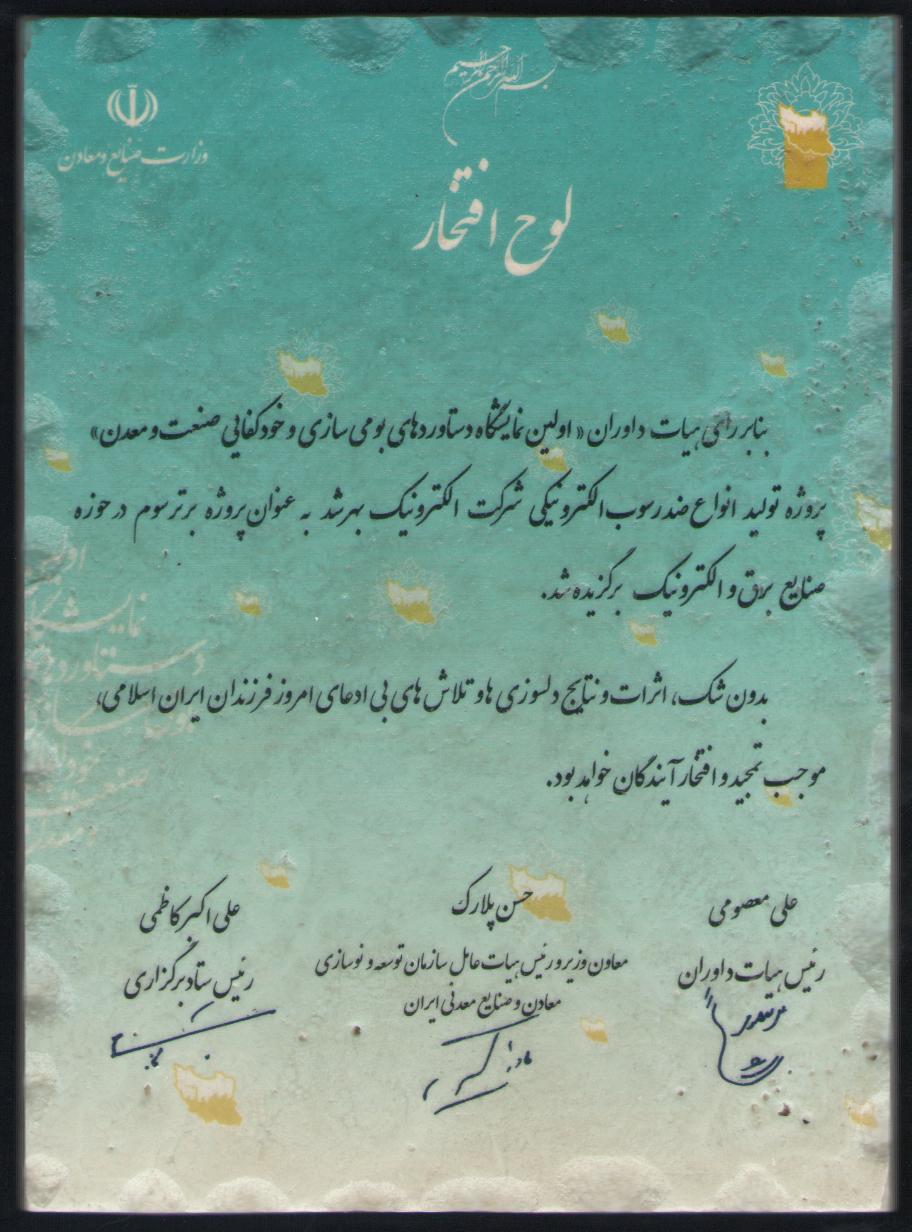 بسم الله الرحمن الرحیم
وزارت صنایع و معادن
لوح افتخار
بنابر رای هیات داوران « اولین نمایشگاه دستاوردهای بومی سازی و خودکفایی صنعت و معدن»
پروژه تولید انواع ضد رسوب الکترونیکی شرکت الکترونیک بهرشد به عنوان پروژه برتر سوم در حوزه
صنایع برق و الکترونیک برگزیده شد.
بدون شک، اثرات و نتایج دلسوزی ها و تلاش های بی ادعای امروز فرزندان ایران اسلامی،
موجب تمجید و افتخار آیندگان خواهد بود.
علی معصومی
رئیس هیات داوران
حسن پلارک
معاون وزیر و رئیس هیات عامل سازمان توسعه و نوسازی
معادن و صنایع معدنی ایران
علی اکبر کاظمی
رئیس ستاد برگزاری
نمایشگاه